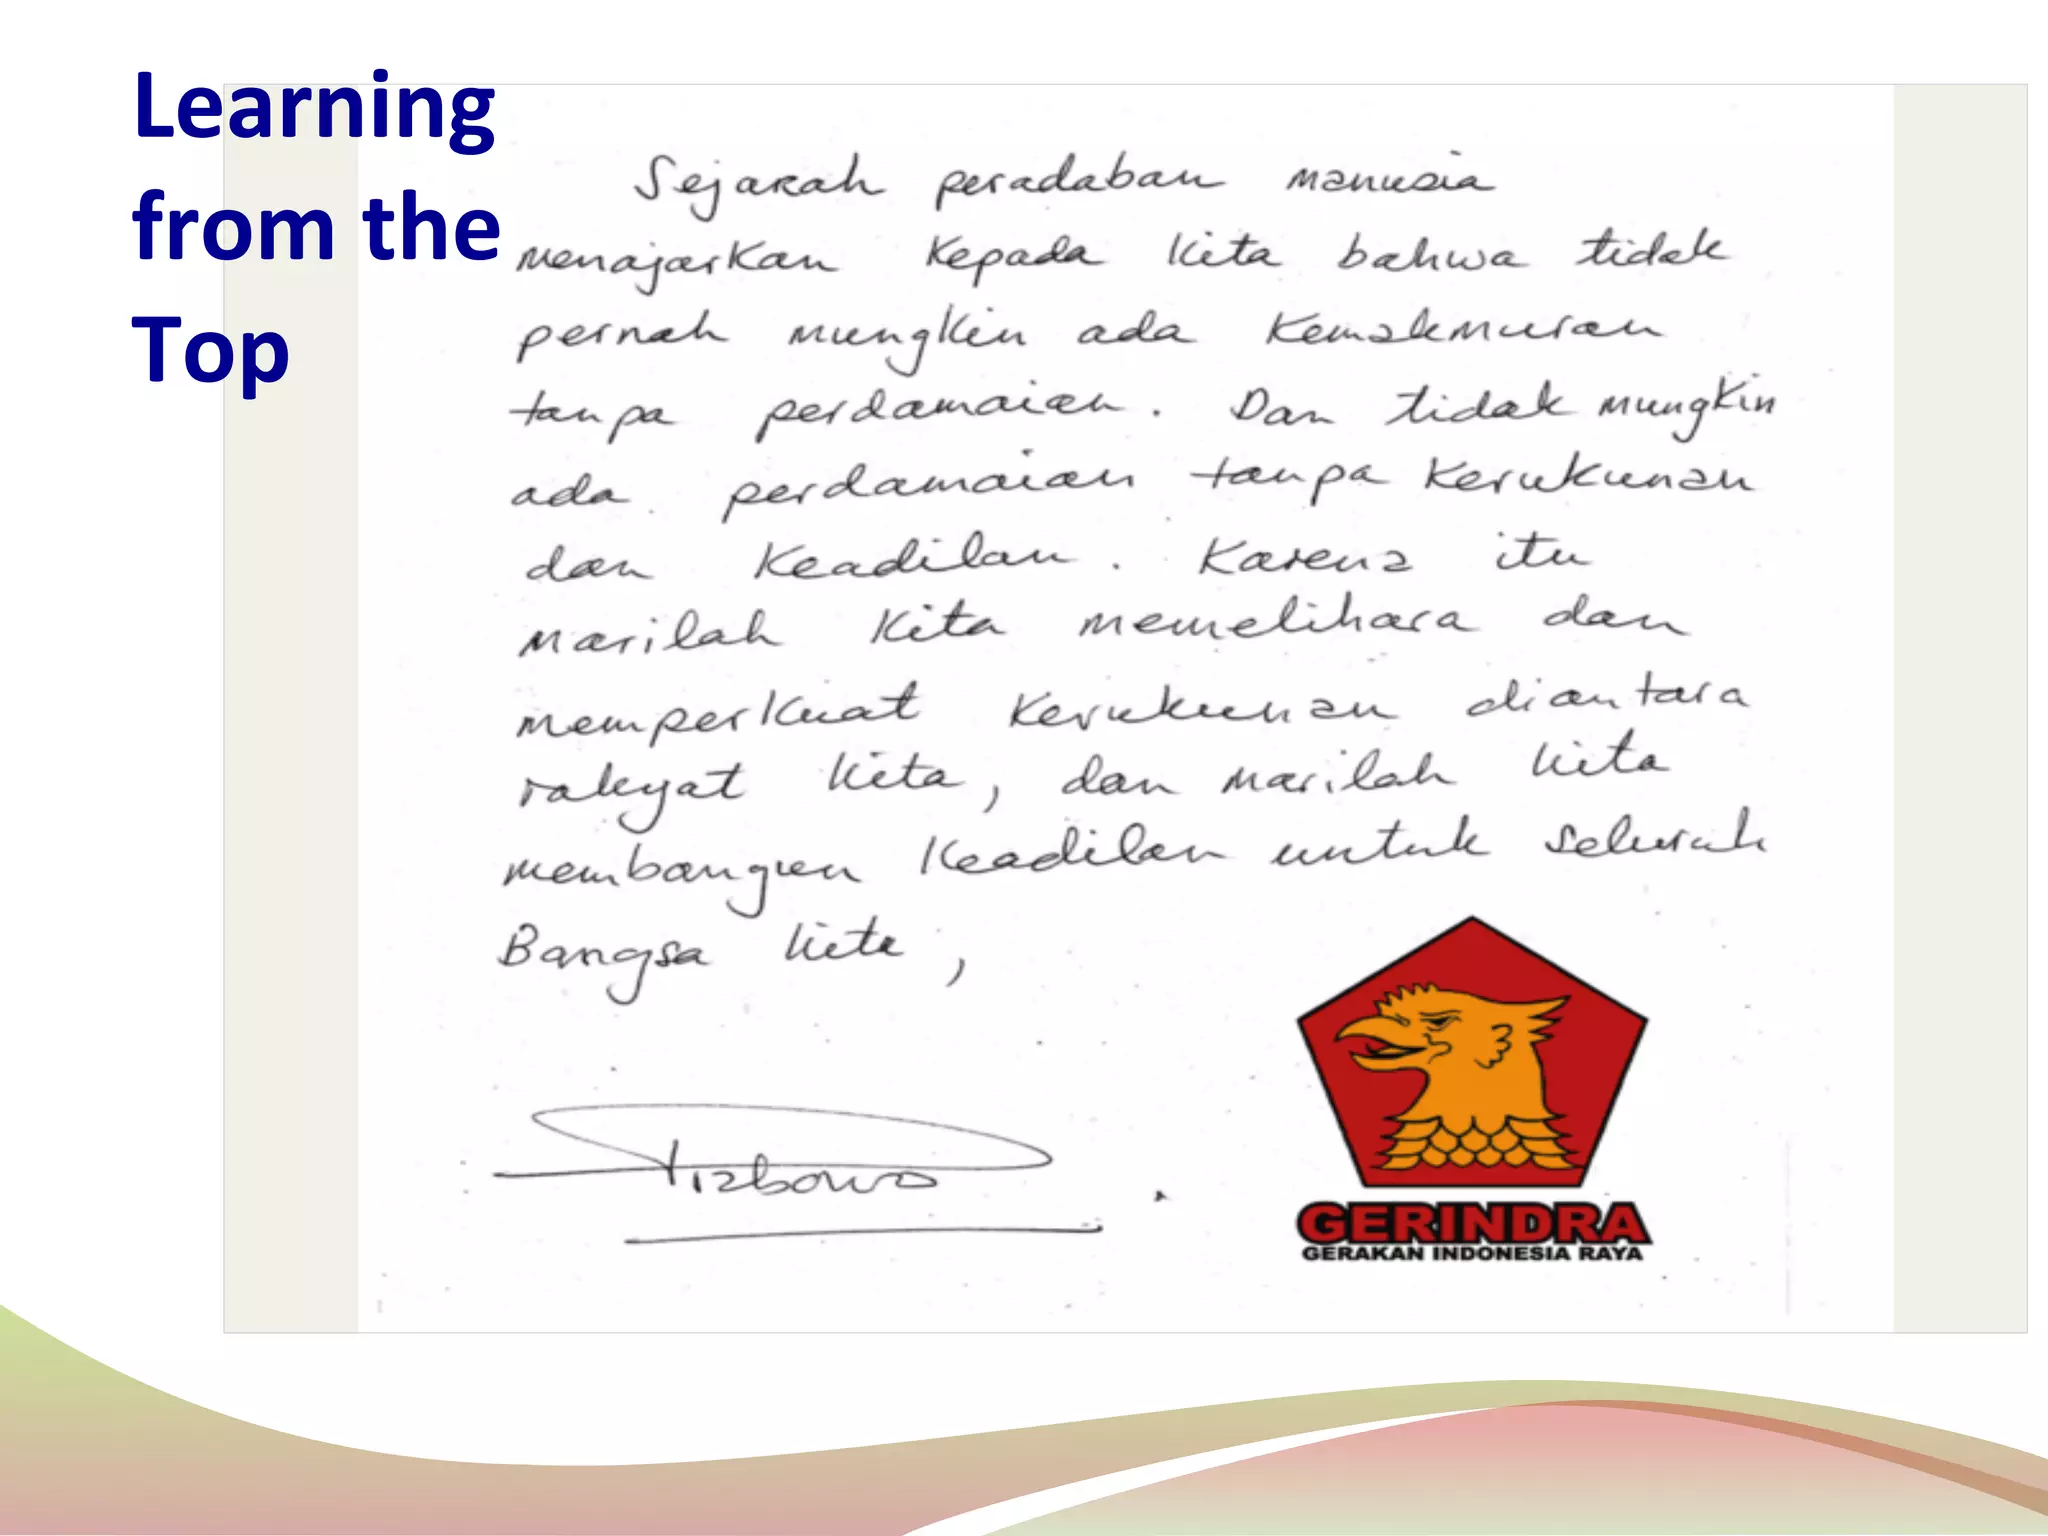 Learning
from the
Top
Sejarah peradaban manusia
menajarkan kepada kita bahwa tidak
pernah mungkin ada kemakmuran
tanpa perdamaian. Dan tidak mungkin
ada perdamaian tanpa kerukunan
dan keadilan. Karena itu
marilah kita memelihara dan
memperkuat kerukunan diantara
rakyat kita, dan marilah kita
membangun keadilan untuk seluruh
Bangsa kita,
Prabowo
GERINDRA
GERAKAN INDONESIA RAYA